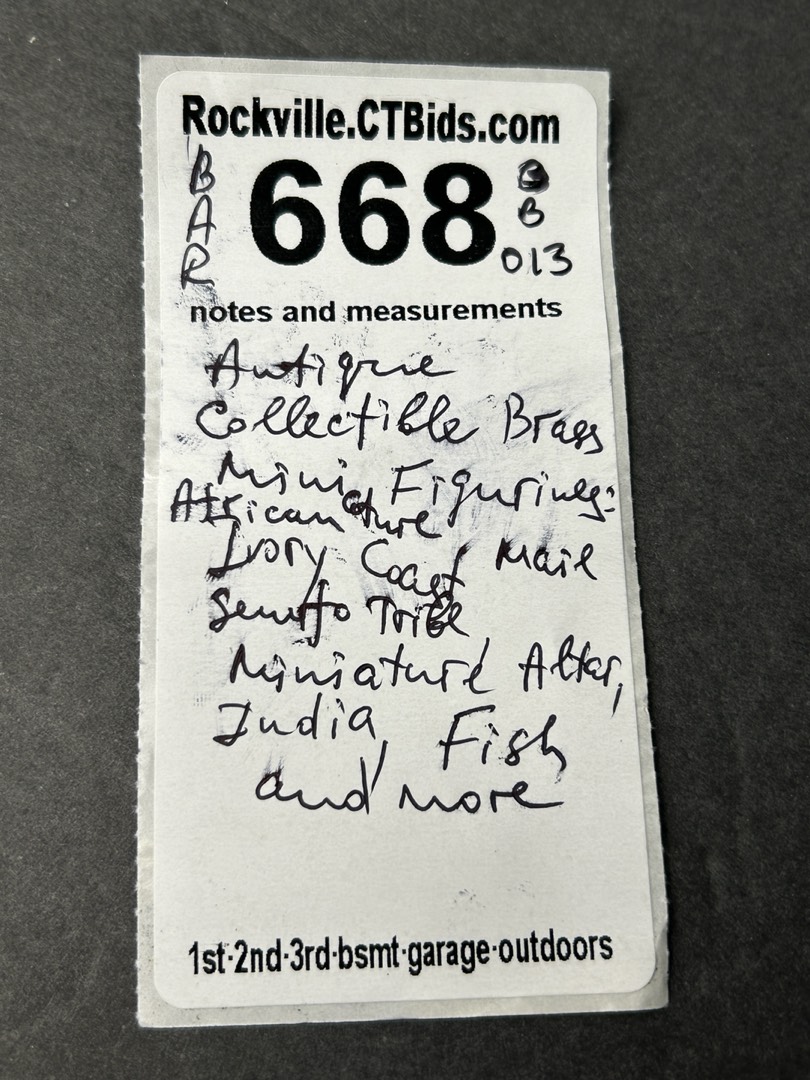 Rockville.CTBids.com
BAR
668
B
B
013
notes and measurements
Antique
Collectible Brass
Miniature Figurines:
African
Ivory Coast Male
Senufo Tribe,
Miniature Altar,
India, Fish
and more
1st·2nd·3rd·bsmt·garage·outdoors